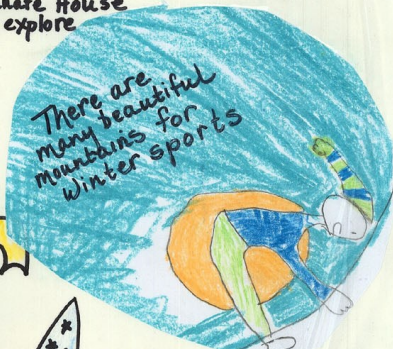 House
explore
There are
many beautiful
mountains for
Winter sports